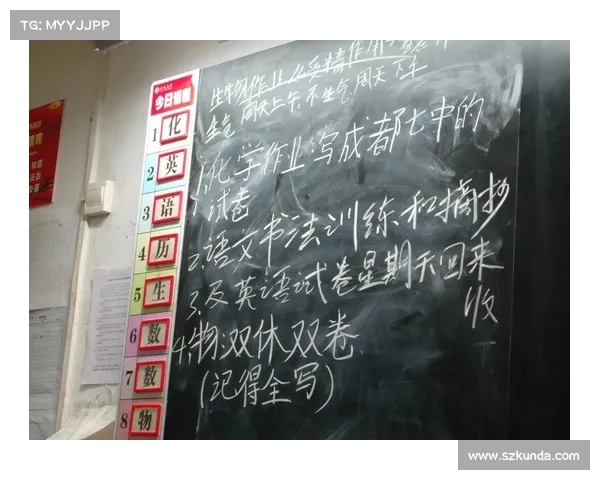 TG: MYYJJPP
今日课程
1 化
2 英
3 语
4 历
5 生
6 数
7 数
8 物
生物作业《受精作用》
生气 周天上午,不生气,周天下午
1.化学作业:写成都七中的
试卷
2.语文书法训练和摘抄
3.及英语试卷星期天回来
收
4.物:双休双卷
(记得全写)
www.szkunda.com